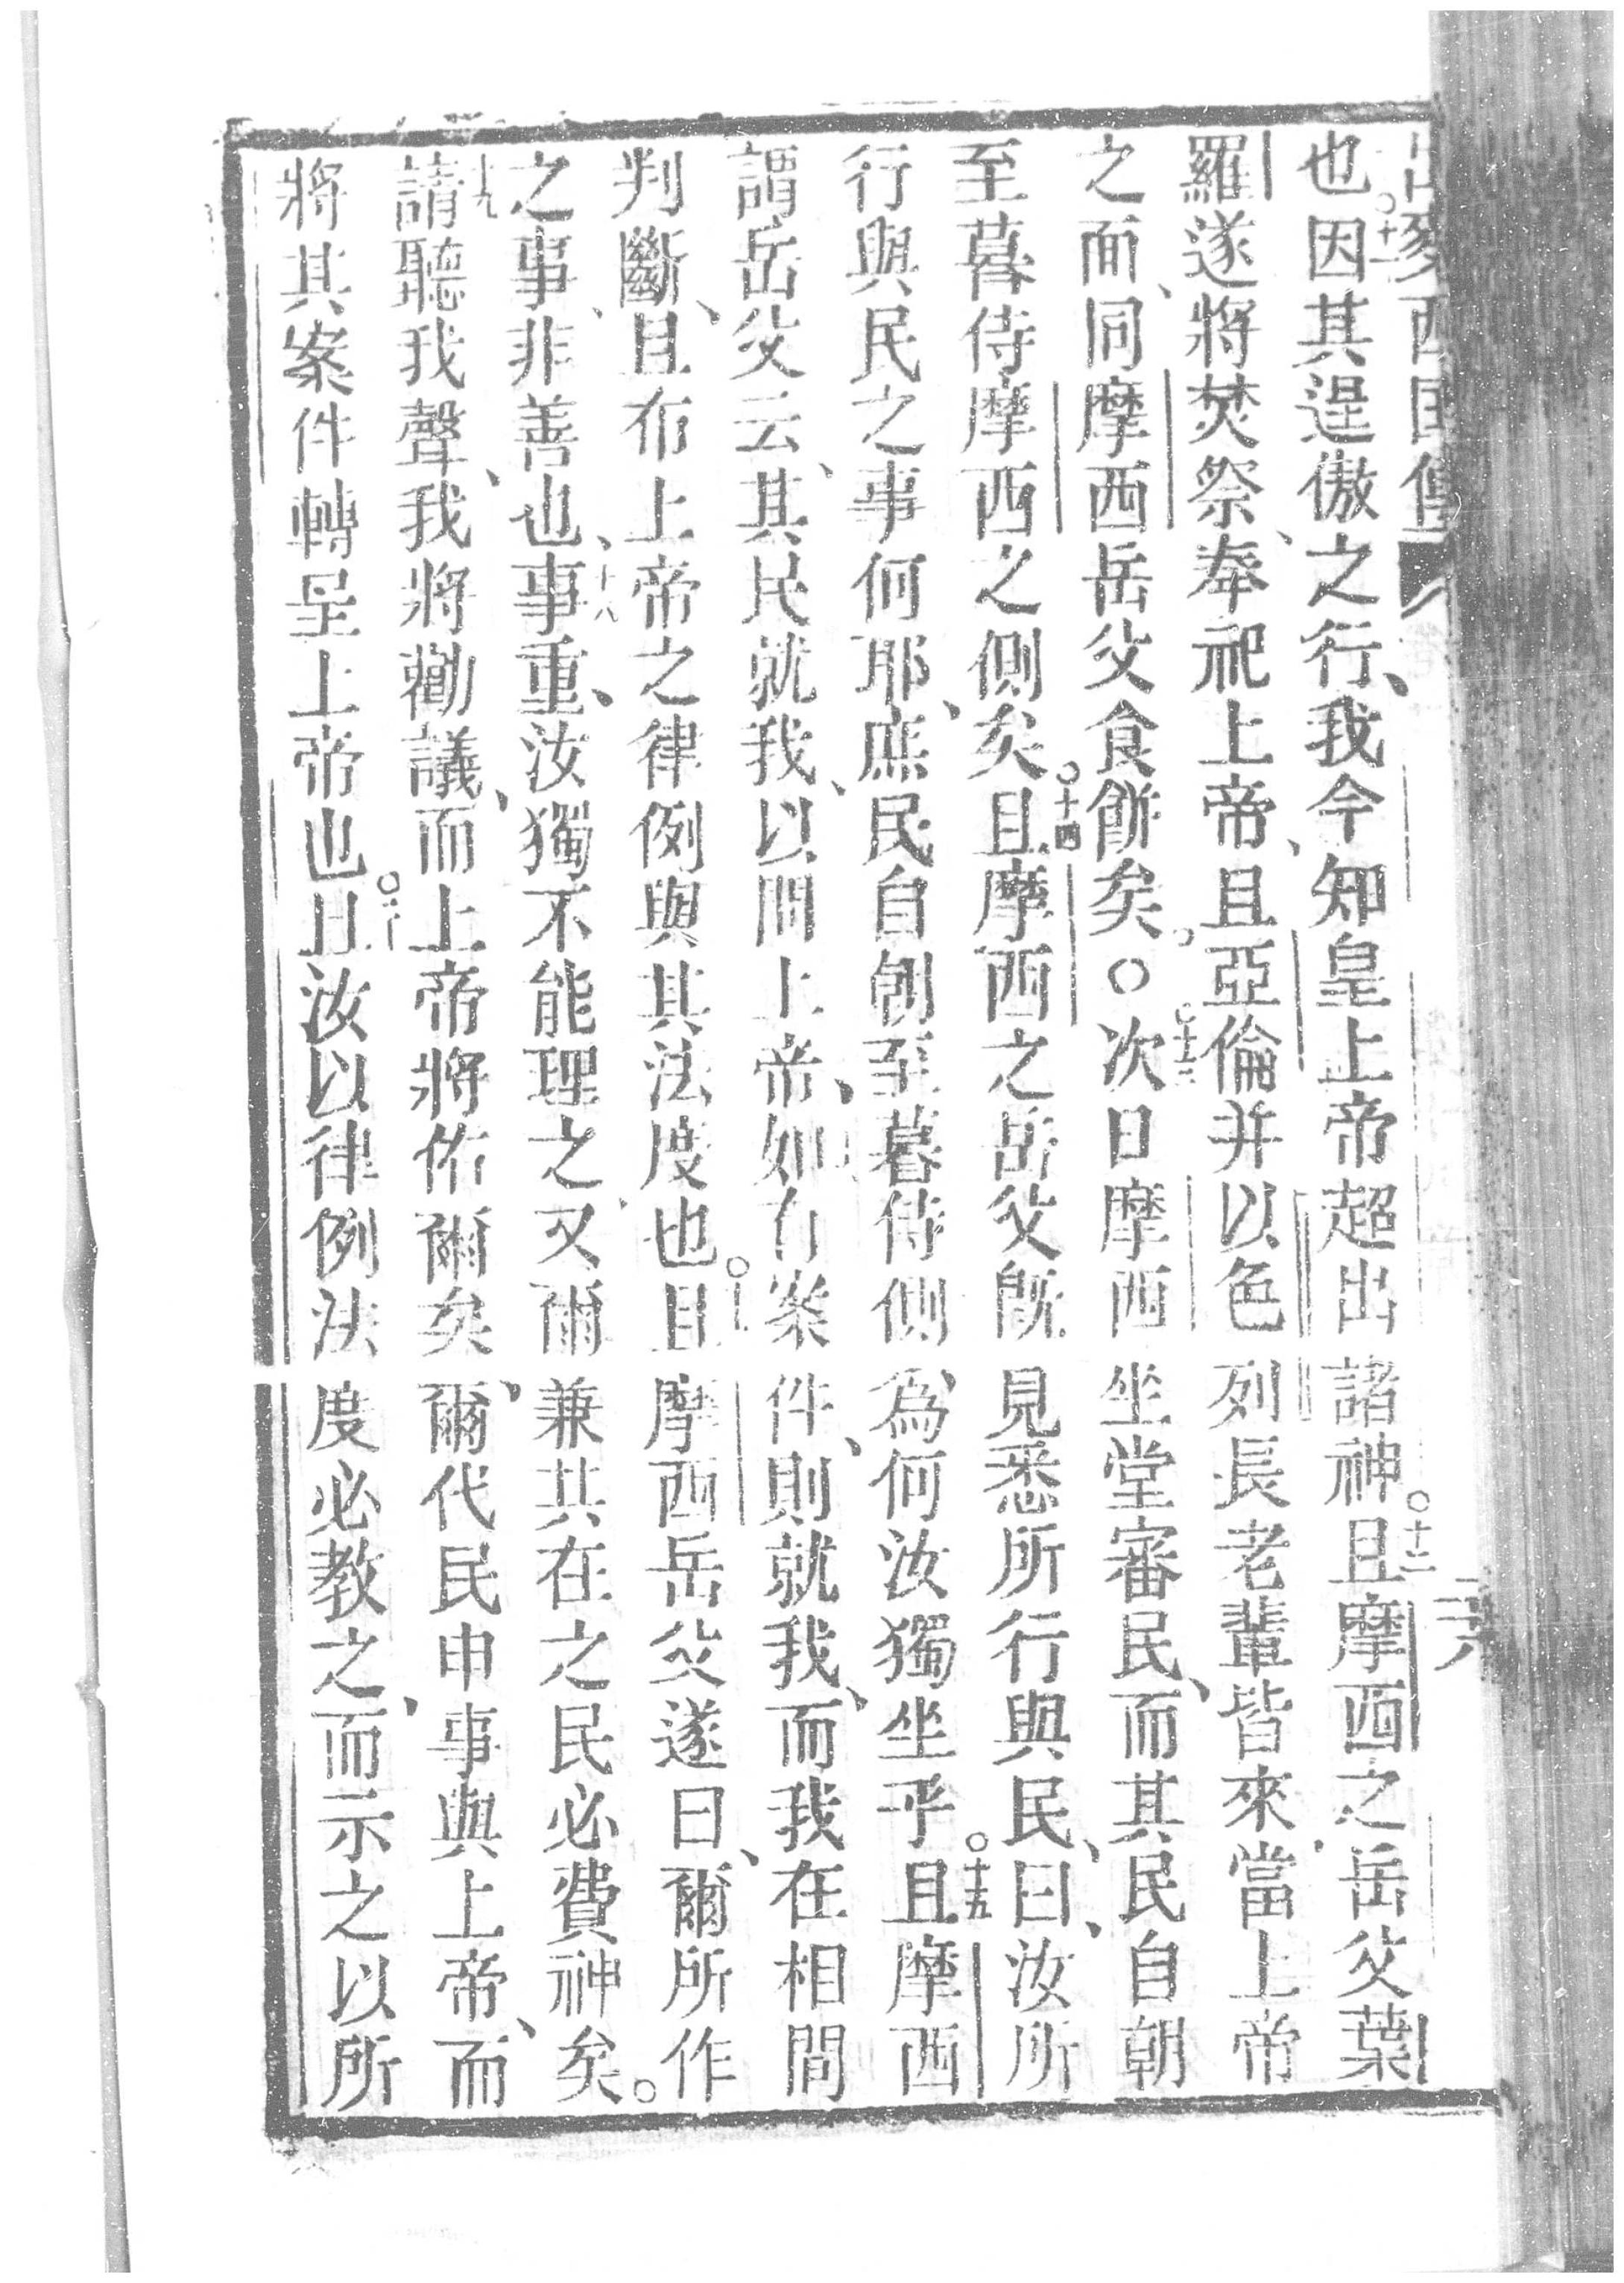 出麥西國傳 二十八
也○十一因其逞傲之行、我今知皇上帝超出諸神○十二且摩西之岳父葉
羅遂將焚祭、奉祀上帝、且亞倫并以色列長老輩皆來、當上帝
之面、同摩西岳父食餅矣。○十三次日摩西坐堂審民、而其民自朝
至暮侍摩西之側矣○十四且摩西之岳父既見悉所行與民、曰、汝所
行與民之事何耶、庶民自朝至暮侍側、為何汝獨坐乎○十五且摩西
謂岳父云、其民就我、以問上帝、如有案件、則就我、而我在相間
判斷、且布上帝之律例與其法度也○且摩西岳父遂曰、爾所作
之事、非善也、十八事重、汝獨不能理之、又爾兼共在之民必費神矣。
十九請聽我聲、我將勸議、而上帝將佑爾矣、爾代民申事與上帝、而
將其案件轉呈上帝也○二十且汝以律例法度必教之、而示之以所